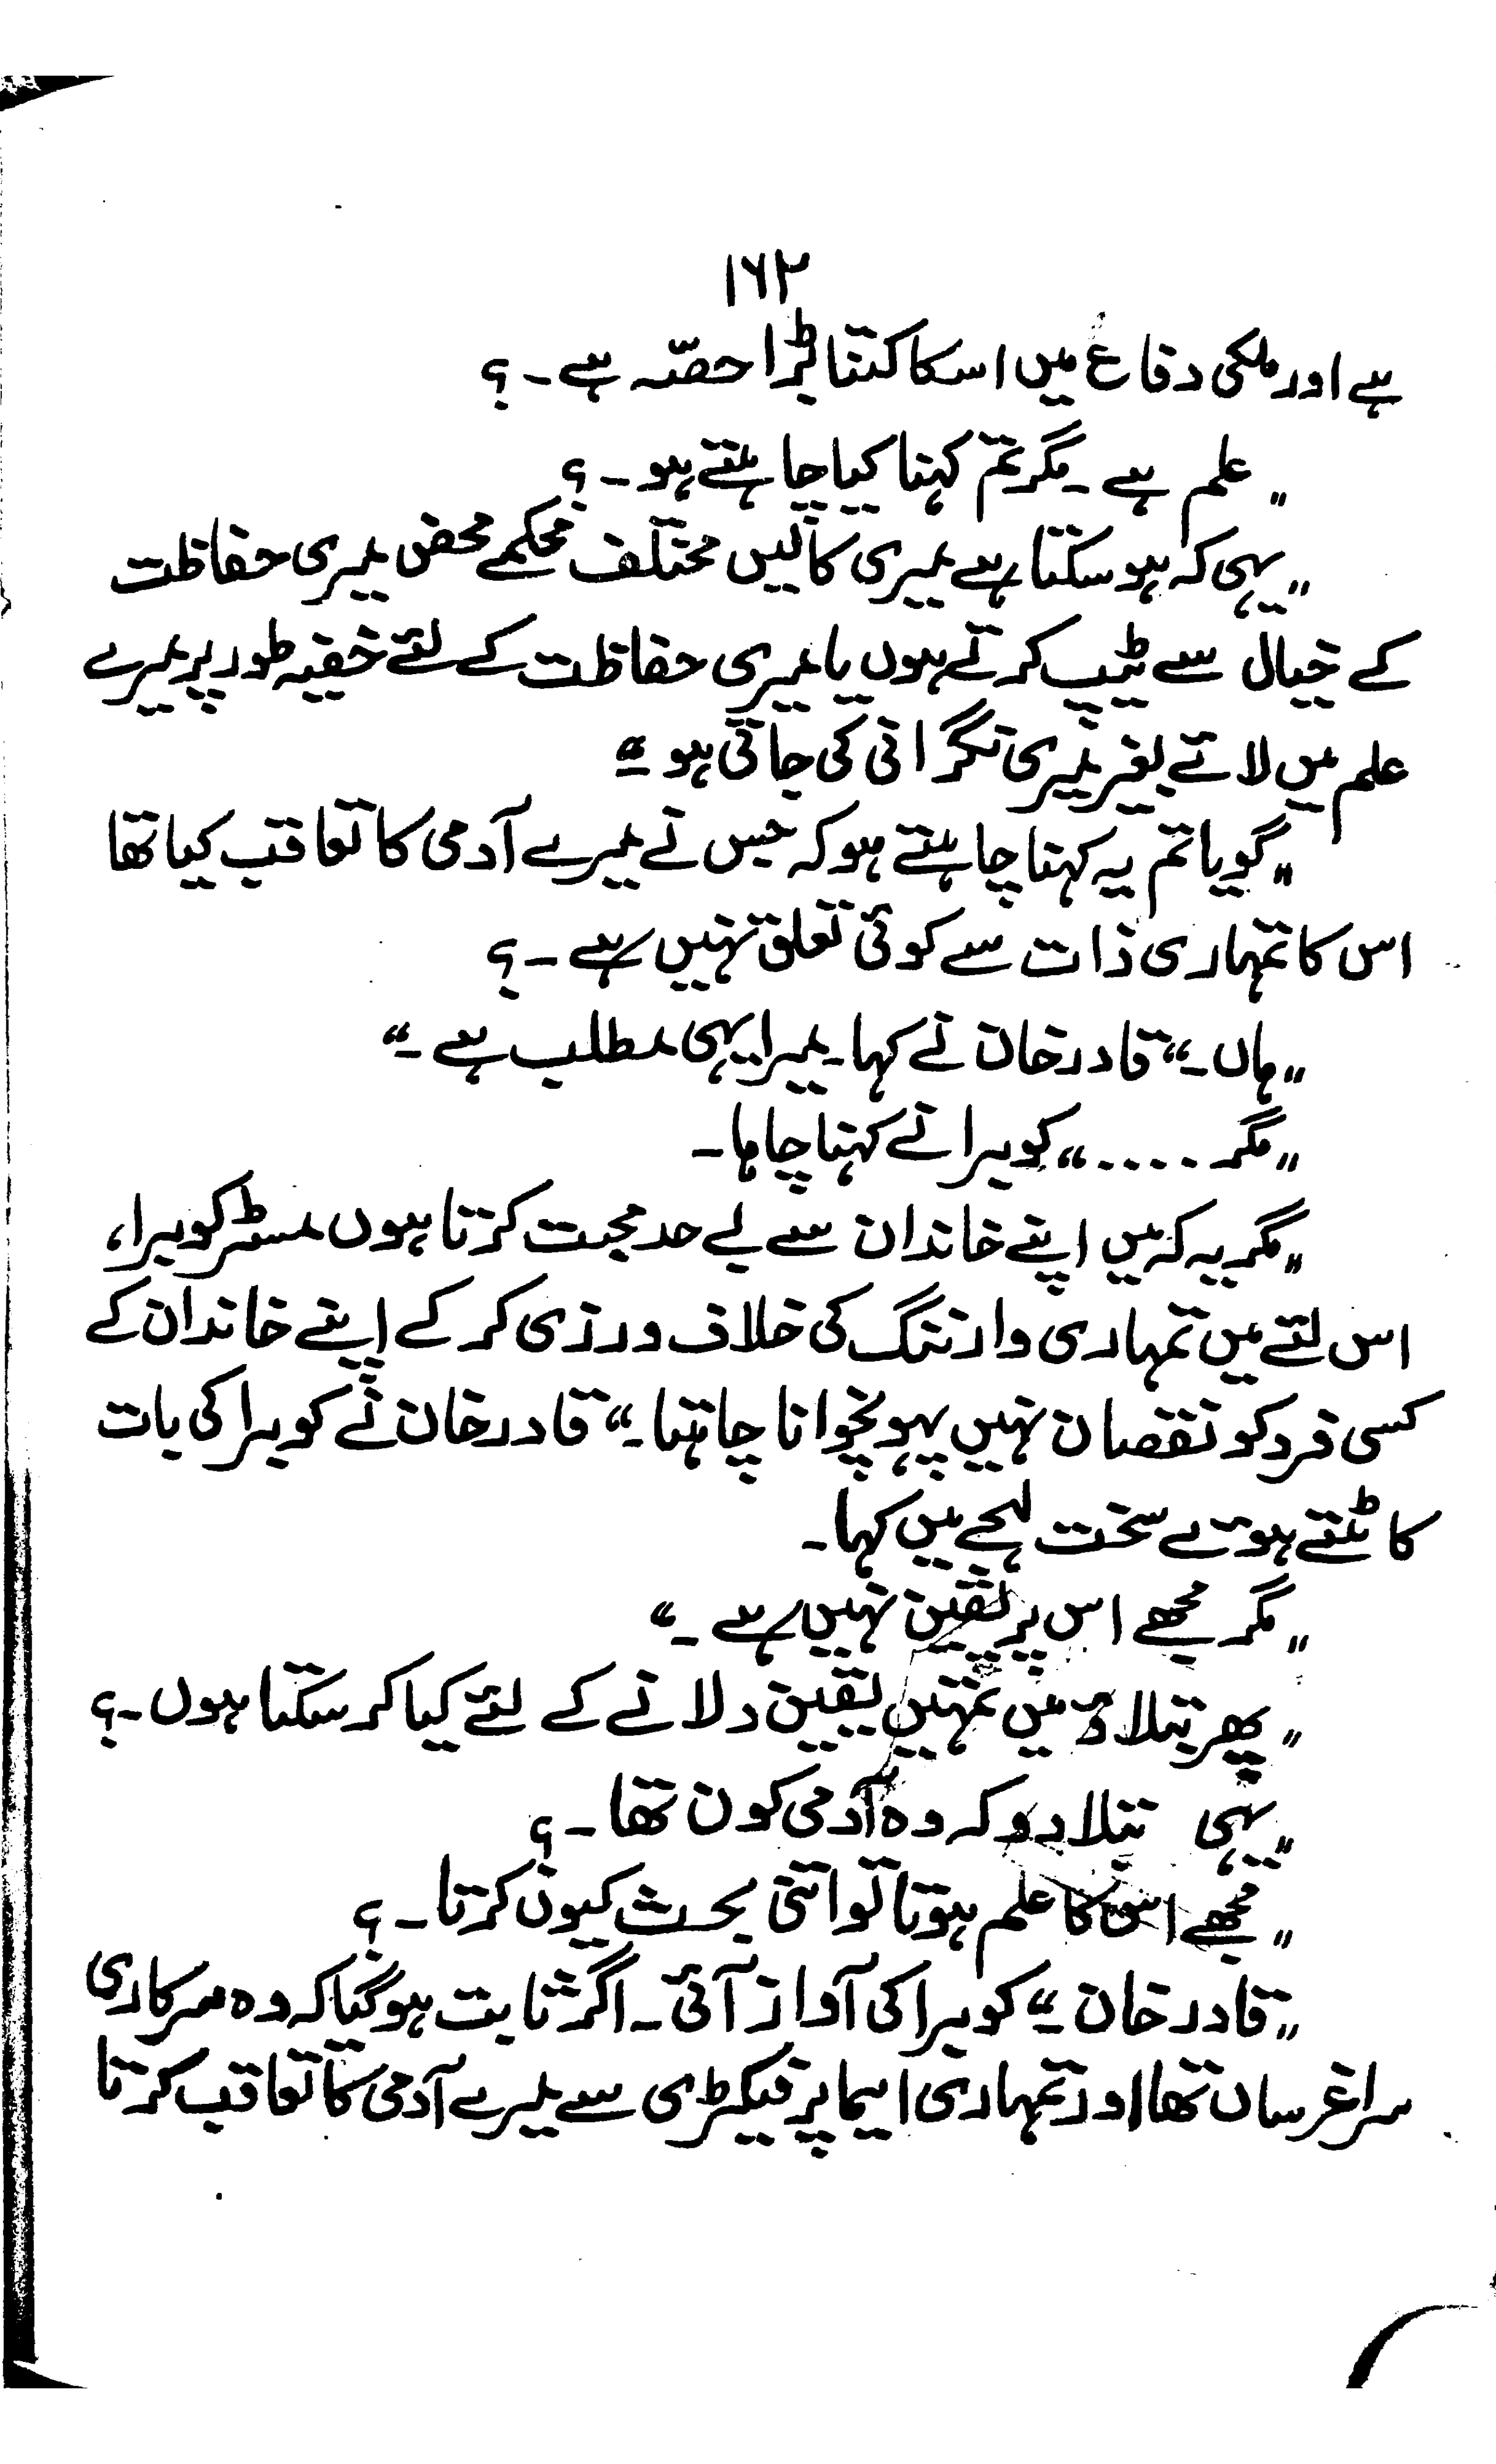 ۱۶۲
ہے اور ملکی دفاع میں اسکا کتنا بڑا حصّہ ہے ۔ ؟
"علم ہے ۔ مگر تم کہنا کیا چاہتے ہو ۔ ؟
"یہی کہ ہو سکتا ہے میری کالیں مختلف محکمے محض میری حفاظت
کے خیال سے ٹیپ کرتے ہوں یا میری حفاظت کے لئے خفیہ طور پر میرے
علم میں لائے بغیر میری نگرانی کی جاتی ہو ۔"
"گویا تم یہ کہنا چاہتے ہو کہ جس نے میرے آدمی کا تعاقب کیا تھا
اس کا تمہاری ذات سے کوئی تعلق نہیں ہے ۔ ؟
"ہاں ۔" قادر خان نے کہا ۔ میرا یہی مطلب ہے ۔"
"مگر ....." کوبرا نے کہنا چاہا ۔
"مگر یہ کہ میں اپنے خاندان سے بے حد محبت کرتا ہوں مسٹر کوبرا،
اس لئے میں تمہاری وارننگ کی خلاف ورزی کر کے اپنے خاندان کے
کسی فرد کو نقصان نہیں پہونچوانا چاہتا ۔" قادر خان نے کوبرا کی بات
کاٹتے ہوئے سخت لہجے میں کہا ۔
"مگر مجھے اس پر یقین نہیں ہے ۔"
"پھر بتلاؤ میں تمہیں یقین دلانے کے لئے کیا کر سکتا ہوں ۔ ؟
"یہی بتلا دو کہ وہ آدمی کون تھا ۔ ؟
"مجھے اس کا علم ہوتا تو اتنی بحث کیوں کرتا ۔ ؟
"قادر خان ۔" کوبرا کی آواز آئی ۔ اگر ثابت ہو گیا کہ وہ سرکاری
سراغرسان تھا اور تمہاری ایما پر فیکٹری سے میرے آدمی کا تعاقب کرتا